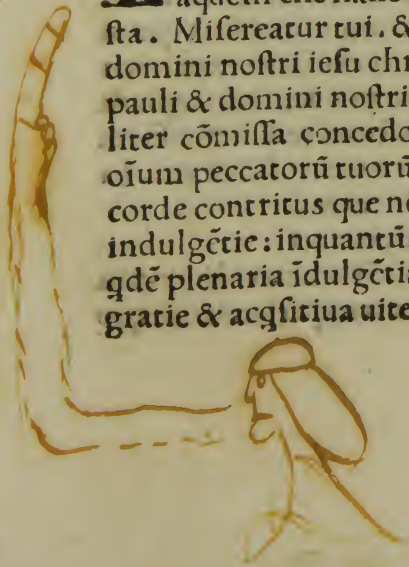 sta. Miſereatur tui. &
domini noſtri ieſu chr
pauli & domini noſtri
liter cōmiſſa concedo
oĩum peccatorũ tuorũ
corde contritus que no
indulgẽtie: inquantũ
qdẽ plenaria ĩdulgẽti
gratie & acqſitiua uite